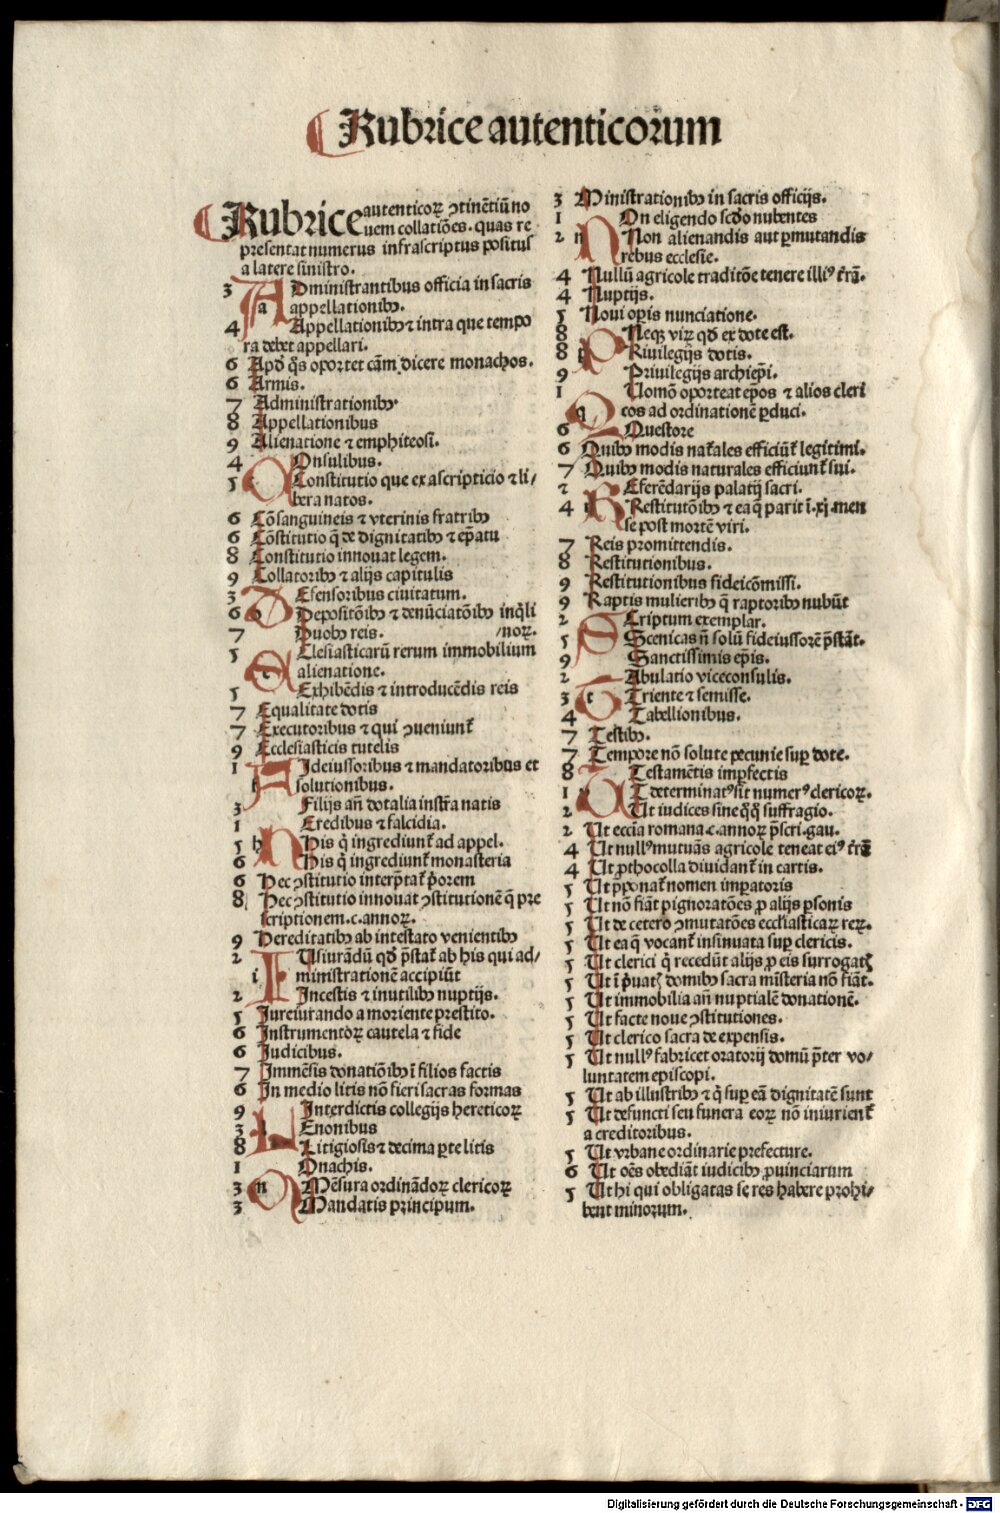 Rubrice autenticorum
Rubrice autenticoꝝ ↄtinētiū no
uem collatiōes. quas re
presentat numerus infrascriptus positus
a latere sinistro.
3 Administrantibus officia in sacris
a appellationibꝰ.
4 Appellationibꝰ ⁊ intra que tempo
ra debet appellari.
6 Apđ q̄s oportet cām dicere monachos.
6 Armis.
7 Administrationibꝰ
8 Appellationibus
9 Alienatione ⁊ emphiteosi.
4 COnsulibus.
5 Constitutio que ex ascripticio ⁊ li/
bera natos.
6 Cōsanguineis ⁊ vterinis fratribꝰ
6 Cōstitutio q̄ de dignitatibꝰ ⁊ ep̄atu
8 Constitutio innouat legem.
9 Collatoribꝰ ⁊ alijs capitulis
3 DEfensoribus ciuitatum.
6 Depositōibꝰ ⁊ denūciatōibꝰ inq̄li
7 Duobꝰ reis. /noꝝ.
5 EClesiasticarū rerum immobilium
e alienatione.
5 Exhibēdis ⁊ introducēdis reis
7 Equalitate dotis
7 Executoribus ⁊ qui ↄueniunt̄
9 Ecclesiasticis tutelis
1 FIdeiussoribus ⁊ mandatoribus et
f solutionibus.
3 Filijs an̄ dotalia instr̄a natis
1 HEredibus ⁊ falcidia.
5 h His q̄ ingrediunt̄ ad appel.
6 His q̄ ingrediunt̄ monasteria
6 Hec ↄstitutio interp̄tat̄ p̄orem
8 Hec ↄstitutio innouat ↄstitutionē q̄ pre
scriptionem .c. annoꝝ.
9 Hereditatibꝰ ab intestato venientibꝰ
2 IUsiurādū qđ p̄stat̄ ab his qui ad/
i ministrationē accipiūt
2 Incestis ⁊ inutilibꝰ nuptijs.
5 Iureiurando a moriente prestito.
6 Instrumentoꝝ cautela ⁊ fide
6 Iudicibus.
7 Immēsis donatiōibꝰ ī filios factis
6 In medio litis nō fieri sacras formas
9 Interdictis collegijs hereticoꝝ
3 l LEnonibus
8 Litigiosis ⁊ decima ꝑte litis
1 MOnachis.
3 m Mēsura ordinādoꝝ clericoꝝ
3 Mandatis principum.
3 Ministrationibꝰ in sacris officijs.
1 NOn eligendo scđo nubentes
2 n Non alienandis aut ꝑmutandis
rebus ecclesie.
4 Nullū agricole traditōe tenere illiꝰ t̄rā.
4 Nuptijs.
5 Noui oꝑis nunciatione.
8 PNeqꝫ viꝝ qđ ex dote est.
8 p Riuilegijs dotis.
9 Priuilegijs archiep̄i.
1 QUomō oporteat ep̄os ⁊ alios cleri
q cos ad ordinationē ꝑduci.
6 Questore
6 Quibꝰ modis nat̄ales efficiūt̄ legitimi.
7 Quibꝰ modis naturales efficiunt̄ sui.
2 REferēdarijs palatij sacri.
4 r Restitutōibꝰ ⁊ ea q̄ parit ī .xj. men
se post mortē viri.
7 Reis promittendis.
8 Restitutionibus.
9 Restitutionibus fideicōmissi.
9 Raptis mulieribꝰ q̄ raptoribꝰ nubūt
2 SCriptum exemplar.
5 Scenicas n̄ solū fideiussorē p̄stāt.
9 Sanctissimis ep̄is.
2 TAbulatio viceconsulis.
3 t Triente ⁊ semisse.
4 Tabellionibus.
7 Testibꝰ.
7 Tempore nō solute pecunie suꝑ dote.
8 Testamētis imꝑfectis
1 UT determinatꝰ sit numerꝰ clericoꝝ.
2 Ut iudices sine q̄q̄ suffragio.
2 Ut ecc̄ia romana .c. annoꝝ p̄scri. gau.
4 Ut nullꝰ mutuās agricole teneat eiꝰ t̄rā
4 Ut ꝓthocolla diuidant̄ in cartis.
5 Ut p̄ponat̄ nomen imꝑatoris
5 Ut nō fiāt pignoratōes ꝓ alijs ꝑsonis
5 Ut de cetero ↄmutatōes eccl̄iasticaꝝ reꝝ.
5 Ut ea q̄ vocant̄ insinuata suꝑ clericis.
5 Ut clerici q̄ recedūt alijs ꝓ eis surrogatꝭ
5 Ut ī p̄uatꝭ domibꝰ sacra mīsteria nō fiāt.
5 Ut immobilia an̄ nuptialē donationē.
5 Ut facte noue ↄstitutiones.
5 Ut clerico sacra de expensis.
5 Ut nullꝰ fabricet oratorij domū p̄ter vo/
luntatem episcopi.
5 Ut ab illustribꝰ ⁊ q̄ suꝑ eā dignitatē sunt
5 Ut defuncti seu funera eoꝝ nō iniurient̄
a creditoribus.
5 Ut vrbane ordinarie prefecture.
6 Ut oēs obediāt iudicibꝰ ꝓuinciarum
5 Ut hi qui obligatas se res habere prohi/
bent minorum.
Digitalisierung gefördert durch die Deutsche Forschungsgemeinschaft - DFG